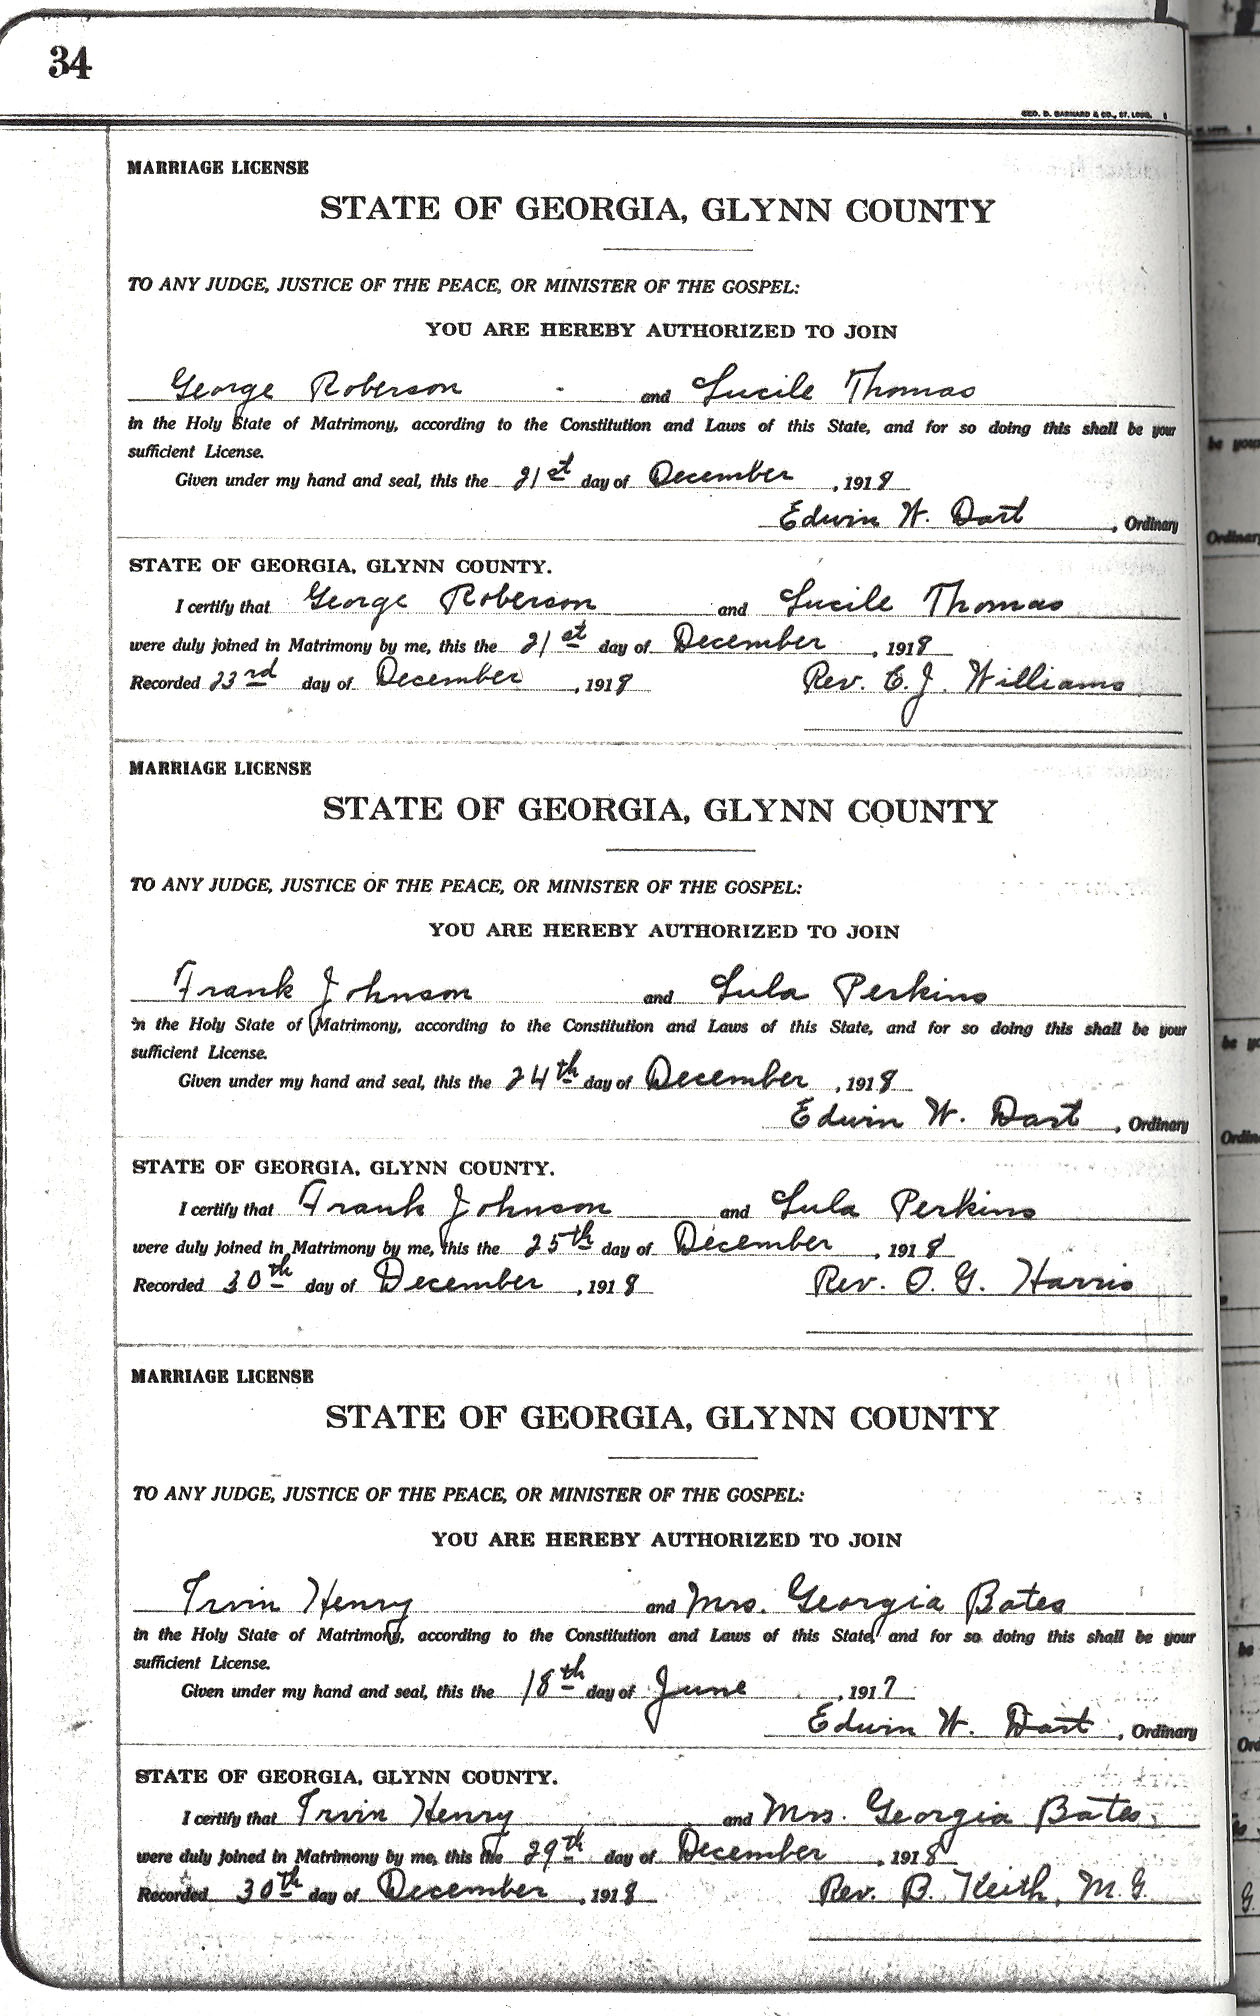 34
GEO. D. BARNARD & CO., ST. LOUIS.
MARRIAGE LICENSE
STATE OF GEORGIA, GLYNN COUNTY
TO ANY JUDGE, JUSTICE OF THE PEACE, OR MINISTER OF THE GOSPEL:
YOU ARE HEREBY AUTHORIZED TO JOIN
George Roberson and Lucile Thomas
in the Holy State of Matrimony, according to the Constitution and Laws of this State, and for so doing this shall be your
sufficient License.
Given under my hand and seal, this the 21st day of December, 1918
Edwin W. Dart, Ordinary
STATE OF GEORGIA, GLYNN COUNTY.
I certify that George Roberson and Lucile Thomas
were duly joined in Matrimony by me, this the 21st day of December, 1918
Recorded 23rd day of December, 1918 Rev. E. J. Williams
MARRIAGE LICENSE
STATE OF GEORGIA, GLYNN COUNTY
TO ANY JUDGE, JUSTICE OF THE PEACE, OR MINISTER OF THE GOSPEL:
YOU ARE HEREBY AUTHORIZED TO JOIN
Frank Johnson and Lula Perkins
in the Holy State of Matrimony, according to the Constitution and Laws of this State, and for so doing this shall be your
sufficient License.
Given under my hand and seal, this the 24th day of December, 1918
Edwin W. Dart, Ordinary
STATE OF GEORGIA, GLYNN COUNTY.
I certify that Frank Johnson and Lula Perkins
were duly joined in Matrimony by me, this the 25th day of December, 1918
Recorded 30th day of December, 1918 Rev. O. G. Harris
MARRIAGE LICENSE
STATE OF GEORGIA, GLYNN COUNTY
TO ANY JUDGE, JUSTICE OF THE PEACE, OR MINISTER OF THE GOSPEL:
YOU ARE HEREBY AUTHORIZED TO JOIN
Irvin Henry and Mrs. Georgia Bates
in the Holy State of Matrimony, according to the Constitution and Laws of this State, and for so doing this shall be your
sufficient License.
Given under my hand and seal, this the 18th day of June, 1917
Edwin W. Dart, Ordinary
STATE OF GEORGIA, GLYNN COUNTY.
I certify that Irvin Henry and Mrs. Georgia Bates
were duly joined in Matrimony by me, this the 29th day of December, 1918
Recorded 30th day of December, 1918 Rev. B. Keith, M.G.